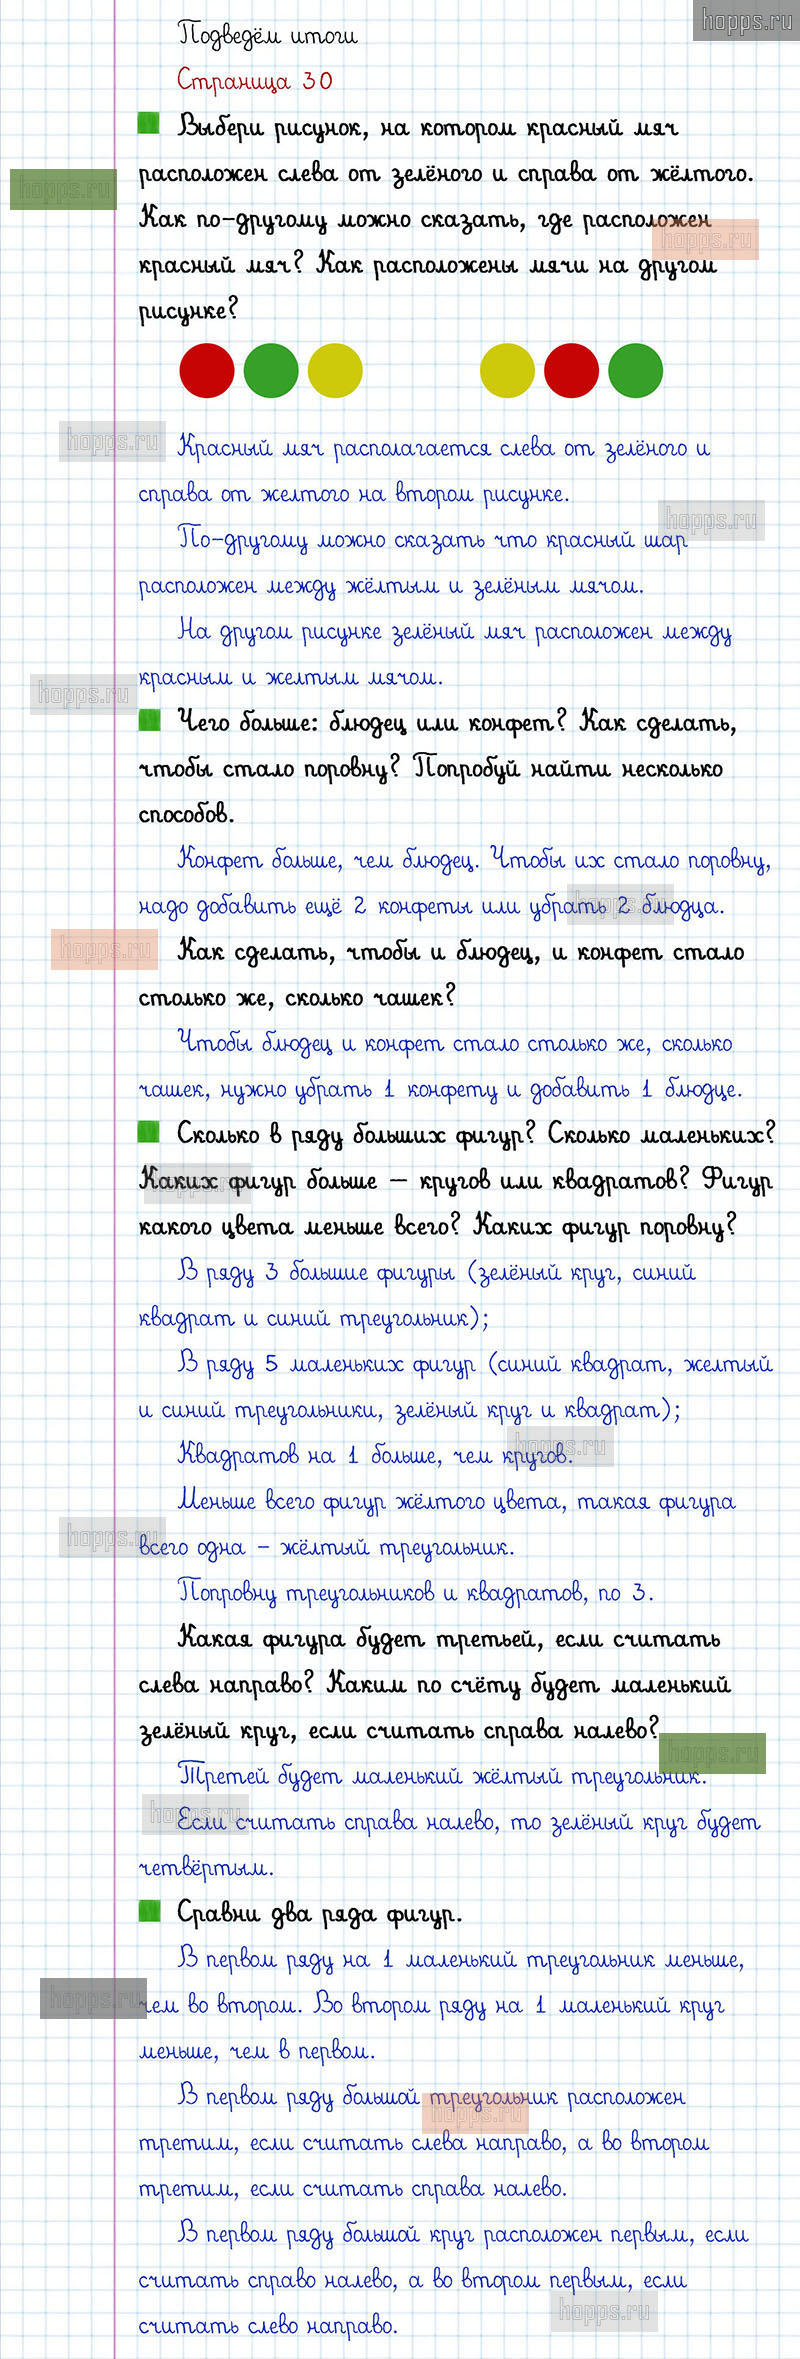 hopps.ru
Подведём итоги
Страница 30
Выбери рисунок, на котором красный мяч
расположен слева от зелёного и справа от жёлтого.
hopps.ru
Как по-другому можно сказать, где расположен
hopps.ru
красный мяч? Как расположены мячи на другом
рисунке?
hopps.ru
Красный мяч располагается слева от зелёного и
справа от желтого на втором рисунке.
hopps.ru
По-другому можно сказать что красный шар
расположен между жёлтым и зелёным мячом.
На другом рисунке зелёный мяч расположен между
hopps.ru
красным и желтым мячом.
Чего больше: блюдец или конфет? Как сделать,
чтобы стало поровну? Попробуй найти несколько
способов.
Конфет больше, чем блюдец. Чтобы их стало поровну,
надо добавить ещё 2 конфеты или убрать 2 блюдца.
hopps.ru
hopps.ru
Как сделать, чтобы и блюдец, и конфет стало
столько же, сколько чашек?
Чтобы блюдец и конфет стало столько же, сколько
чашек, нужно убрать 1 конфету и добавить 1 блюдце.
Сколько в ряду больших фигур? Сколько маленьких?
Каких фигур больше – кругов или квадратов? Фигур
hopps.ru
какого цвета меньше всего? Каких фигур поровну?
В ряду 3 большие фигуры (зелёный круг, синий
квадрат и синий треугольник);
В ряду 5 маленьких фигур (синий квадрат, желтый
и синий треугольники, зелёный круг и квадрат);
Квадратов на 1 больше, чем кругов.
hopps.ru
Меньше всего фигур жёлтого цвета, такая фигура
hopps.ru
всего одна – жёлтый треугольник.
Попровну треугольников и квадратов, по 3.
Какая фигура будет третьей, если считать
слева направо? Каким по счёту будет маленький
зелёный круг, если считать справа налево?
hopps.ru
Третей будет маленький жёлтый треугольник.
hopps.ru
Если считать справа налево, то зелёный круг будет
четвёртым.
Сравни два ряда фигур.
В первом ряду на 1 маленький треугольник меньше,
hopps.ru
чем во втором. Во втором ряду на 1 маленький круг
меньше, чем в первом.
В первом ряду большой треугольник расположен
hopps.ru
третим, если считать слева направо, а во втором
третим, если считать справа налево.
В первом ряду большой круг расположен первым, если
считать справо налево, а во втором первым, если
hopps.ru
считать слево направо.